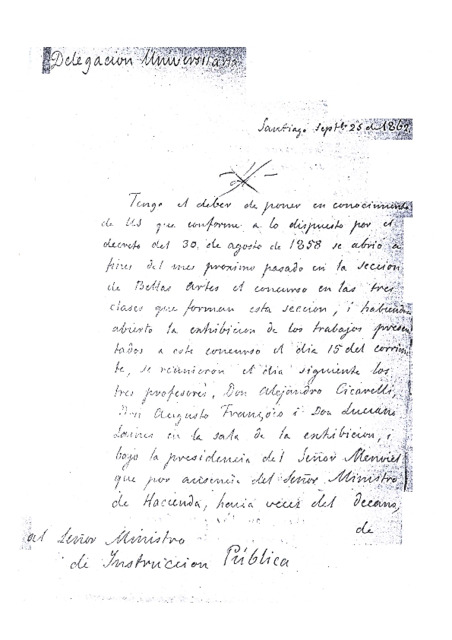 Delegacion Universitaria
Santiago Septbe 25 de 1862
Tengo el deber de poner en conocimiento
de US que conforme a lo dispuesto por el
decreto del 30 de agosto de 1858 se abrió a
fines del mes proximo pasado en la seccion
de Bellas Artes el concurso en las tres
clases que forman esta seccion, i habiendo
abierto la exhibicion de los trabajos presen
tados a este concurso el dia 15 del corrien
te, se reunieron el dia siguiente los
tres profesores, Don Alejandro Cicarelli,
Don Augusto François i Don Luciano
Laines en la sala de la exhibicion, i
bajo la presidencia del Señor
que por ausencia del Señor Ministro
de Hacienda, hacia veces del decano,
de
al Señor Ministro
de Instruccion Pública